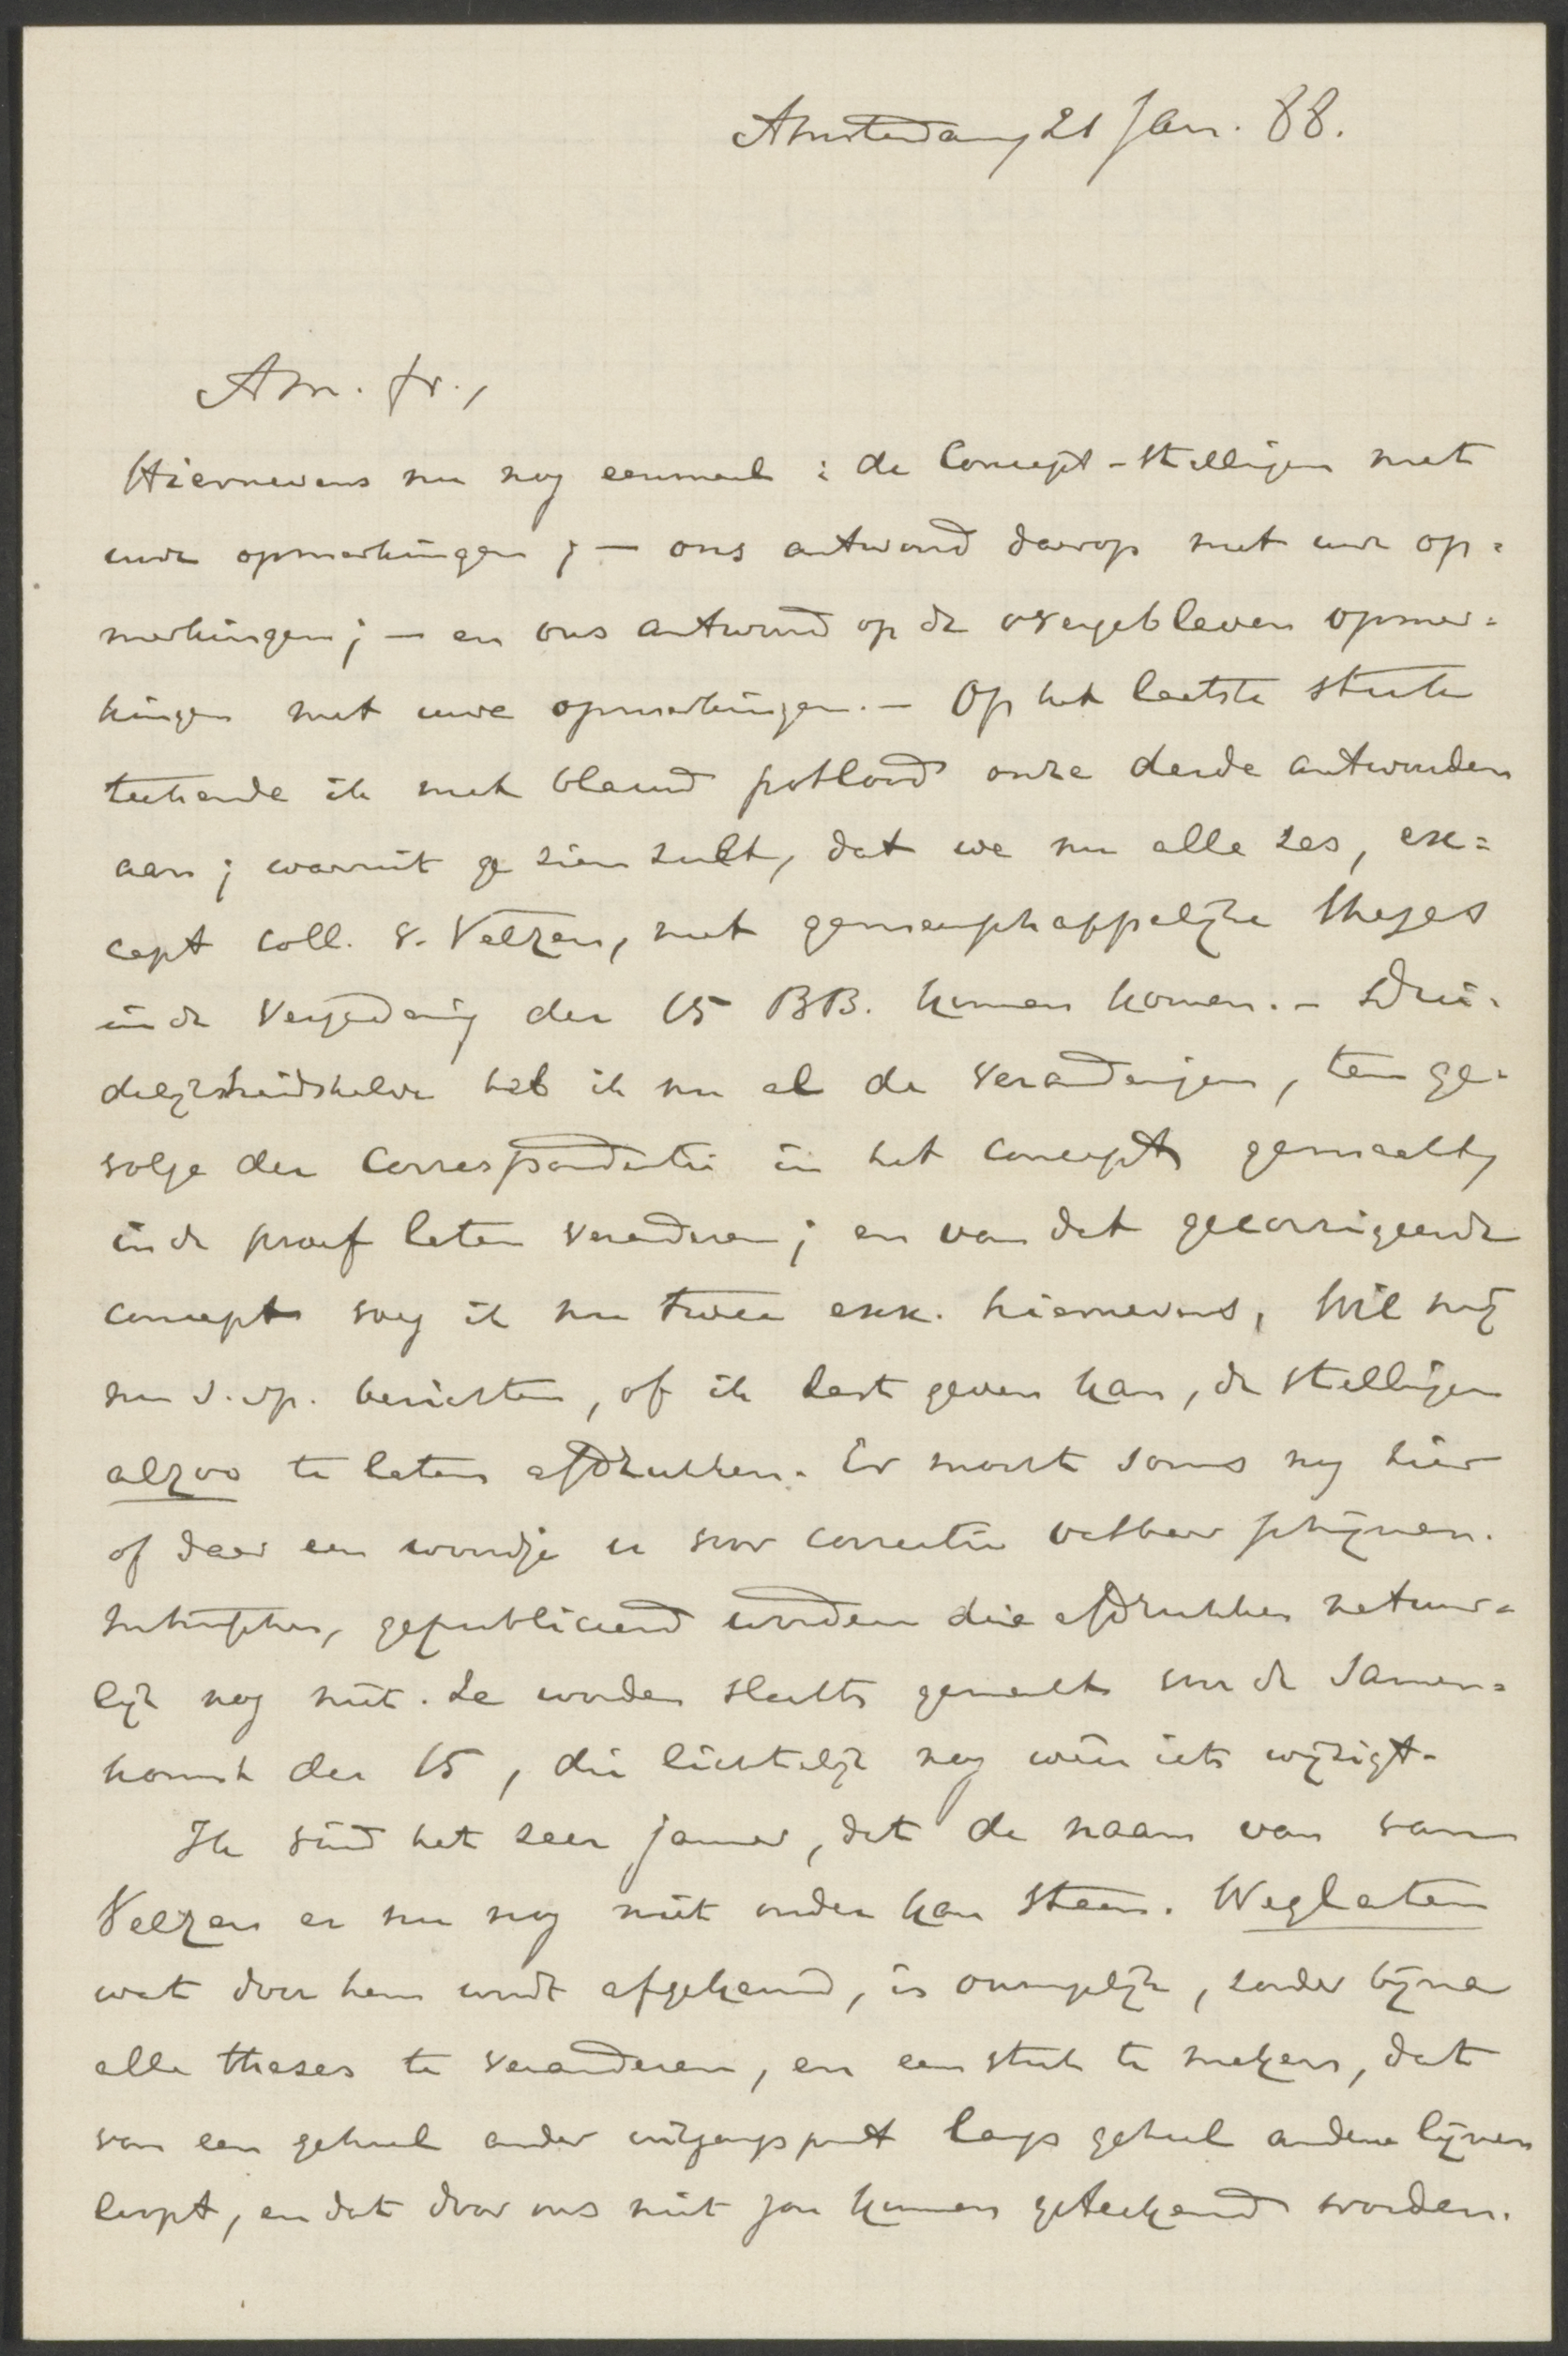 Amsterdam, 21 Jan. 88.
Am. fr.,
Hiernevens nu nog eenmaal: de Concept-stellingen met
uwe opmerkingen; — ons antwoord daarop met uwe op=
merkingen; — en ons antwoord op de overgebleven opmer=
kingen met uwe opmerkingen. — Op het laatste stuk
teekende ik met blauw potlood onze derde antwoorden
aan; waaruit ge zien zult, dat we nu alle zes, ex=
cept coll. v. Velzen, met gemeenschappelijke theses
in de Vergadering der 15 BB. kunnen komen. — Dui=
delijkheidshalve heb ik nu al de veranderingen, ten ge=
volge der Correspondentie in het concept gemaakt,
in de proef laten veranderen; en van dat gecorrigeerde
concept voeg ik nu twee exx. hiernevens. Wil mij
nu s.v.p. berichten, of ik last geven kan, de stellingen
alzoo te laten afdrukken. Er mocht soms nog hier
of daar een woordje u voor correctie vatbaar schijnen.
Intusschen, gepubliceerd worden die afdrukken natuur=
lijk nog niet. Ze worden slechts gemaakt voor de Samen=
komst der 15, die lichtelijk nog weer iets wijzigt.
Ik vind het zeer jammer, dat de naam van van
Velzen er nu nog niet onder kan staan. Weglaten
wat door hem wordt afgekeurd, is onmogelijk, zonder bijna
alle theses te veranderen, en een stuk te maken, dat
van een geheel ander uitgangspunt langs geheel andere lijnen
loopt, en dat door ons niet zou kunnen geteekend worden.